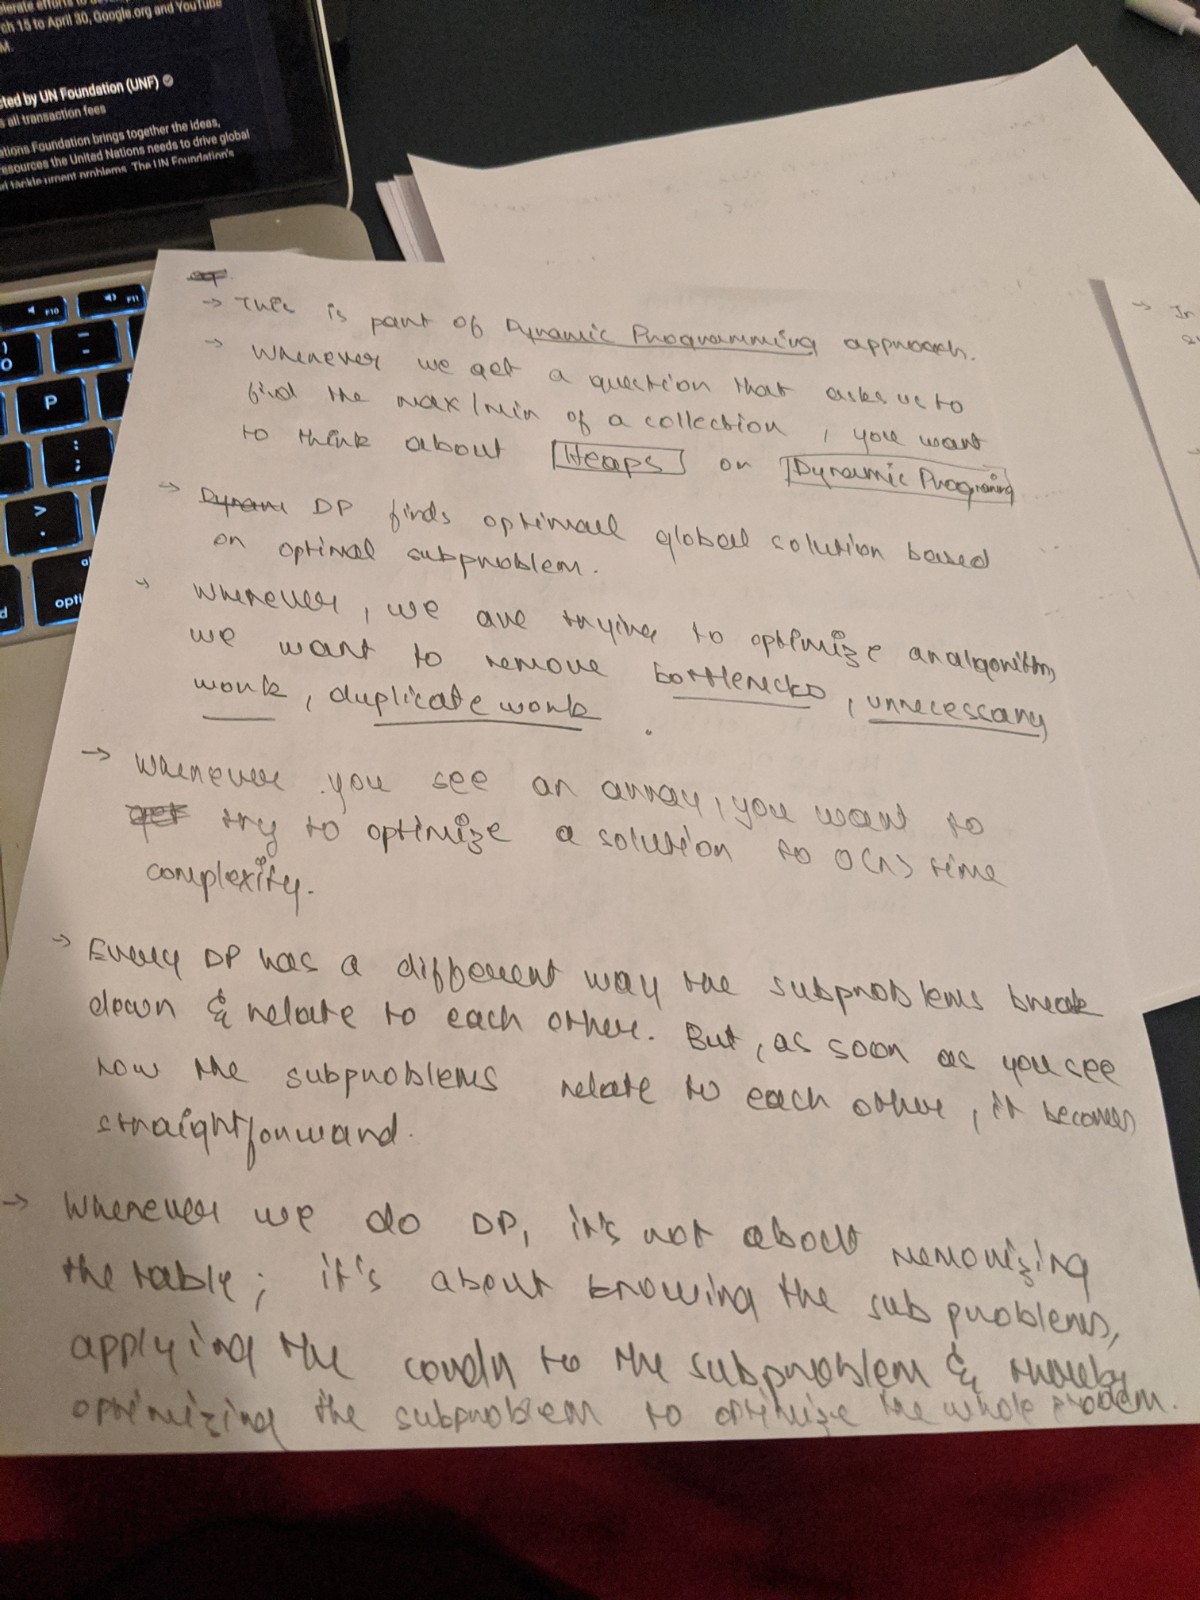 elerate efforts to
ch 15 to April 30, Google.org and YouTube
M.
cted by UN Foundation (UNF)
s all transaction fees
ations Foundation brings together the ideas,
esources the United Nations needs to drive global
d tackle urgent problems. The UN Foundation's
F10
F11
P
opti
→ This is part of Dynamic Programming approach.
→ Whenever we get a question that asks us to
find the max/min of a collection, you want
to think about Heaps or Dynamic Programing
→ DP finds optimal global solution based
on optimal subproblem.
→ Whenever, we are trying to optimize an algorithm,
we want to remove bottlenecks, unnecessary
work, duplicate work.
→ Whenever you see an array, you want to
try to optimize a solution to O(n) time
complexity.
→ Every DP has a different way the subproblems break
down & relate to each other. But, as soon as you see
how the subproblems relate to each other, it becomes
straightforward.
→ Whenever we do DP, it's not about memorizing
the table; it's about knowing the sub problems,
applying the condn to the subproblem & thereby
optimizing the subproblem to optimize the whole problem.
→ In